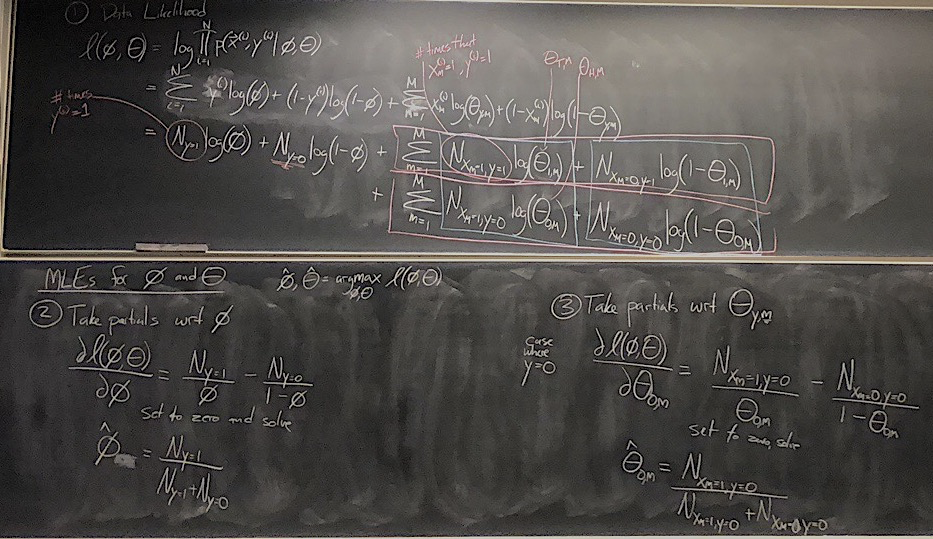 ① Data Likelihood
ℓ(φ, Θ) = log ∏_{i=1}^{N} p(x⃗^{(i)}, y^{(i)} | φ, Θ)
# times that
x_m^{(i)}=1, y^{(i)}=1
Θ_{T,M} Θ_{H,M}
= Σ_{i=1}^{N} y^{(i)} log(φ) + (1-y^{(i)}) log(1-φ) + Σ_{m=1}^{M} x_m^{(i)} log(Θ_{y,m}) + (1-x_m^{(i)}) log(1-Θ_{y,m})
# times
y^{(i)}=1
= N_{y=1} log(φ) + N_{y=0} log(1-φ) + Σ_{m=1}^{M} N_{x_m=1,y=1} log(Θ_{1,m}) + N_{x_m=0,y=1} log(1-Θ_{1,m})
+ Σ_{m=1}^{M} N_{x_m=1,y=0} log(Θ_{0,m}) + N_{x_m=0,y=0} log(1-Θ_{0,m})
MLEs for φ and Θ
φ̂, Θ̂ = argmax_{φ,Θ} ℓ(φ,Θ)
② Take partials wrt φ
∂ℓ(φ,Θ)/∂φ = N_{y=1}/φ - N_{y=0}/(1-φ)
set to zero and solve
φ̂ = N_{y=1}/(N_{y=1}+N_{y=0})
③ Take partials wrt Θ_{y,m}
case
where
y=0
∂ℓ(φ,Θ)/∂Θ_{0,m} = N_{x_m=1,y=0}/Θ_{0,m} - N_{x_m=0,y=0}/(1-Θ_{0,m})
set to zero, solve
Θ̂_{0,m} = N_{x_m=1,y=0}/(N_{x_m=1,y=0} + N_{x_m=0,y=0})